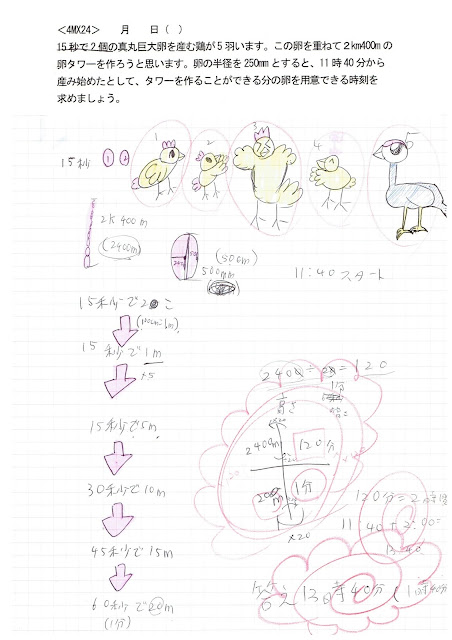 <4MX24>　　月　　日（　）
15秒で2個の真丸巨大卵を産む鶏が5羽います。この卵を重ねて2km400mの
卵タワーを作ろうと思います。卵の半径を250mmとすると、11時40分から
産み始めたとして、タワーを作ることができる分の卵を用意できる時刻を
求めましょう。
1
2
3
4
5
15秒
2k400m
(2400m)
(50cm)
500mm
11:40スタート
15秒で2こ
(100cm=1m)
15秒で1m
×5
15秒で5m
30秒で10m
45秒で15m
60秒で20m
(1分)
2400÷20=120
1分
高さ
2400m
120分
20m
1分
×20
120分=2時間
11:40+2:00=
13:40
答え 13時40分